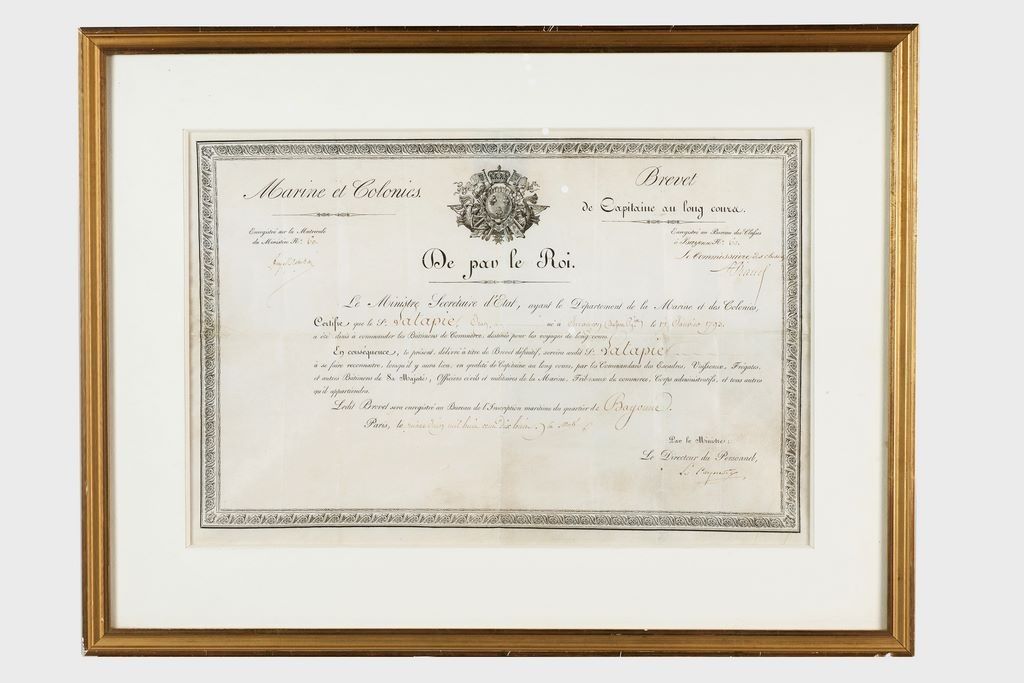 Marine et Colonies.
Brevet
de Capitaine au long cours.
Enregistré sur la Matricule
du Ministère Nº. 60.
Enregistré au Bureau des Classes
à Bayonne Nº. 60.
Le Commissaire des classes
De par le Roi.
Le Ministre Secrétaire d'Etat, ayant le Département de la Marine et des Colonies,
Certifie que le Sr. Latapie né à le 17 Janvier 1793.
a été admis à commander les Bâtimens de Commerce, destinés pour les voyages de long cours.
En conséquence, le présent, délivré à titre de Brevet définitif, servira audit Sr. Latapie
à se faire reconnaître, lorsqu'il y aura lieu, en qualité de Capitaine au long cours, par les Commandans des Escadres, Vaisseaux, Frégates,
et autres Bâtimens de Sa Majesté, Officiers civils et militaires de la Marine, Tribunaux de commerce, Corps administratifs, et tous autres
qu'il appartiendra.
Ledit Brevet sera enregistré au Bureau de l'Inscription maritime du quartier de Bayonne.
Paris, le mil huit cent dix huit
Par le Ministre:
Le Directeur du Personnel,